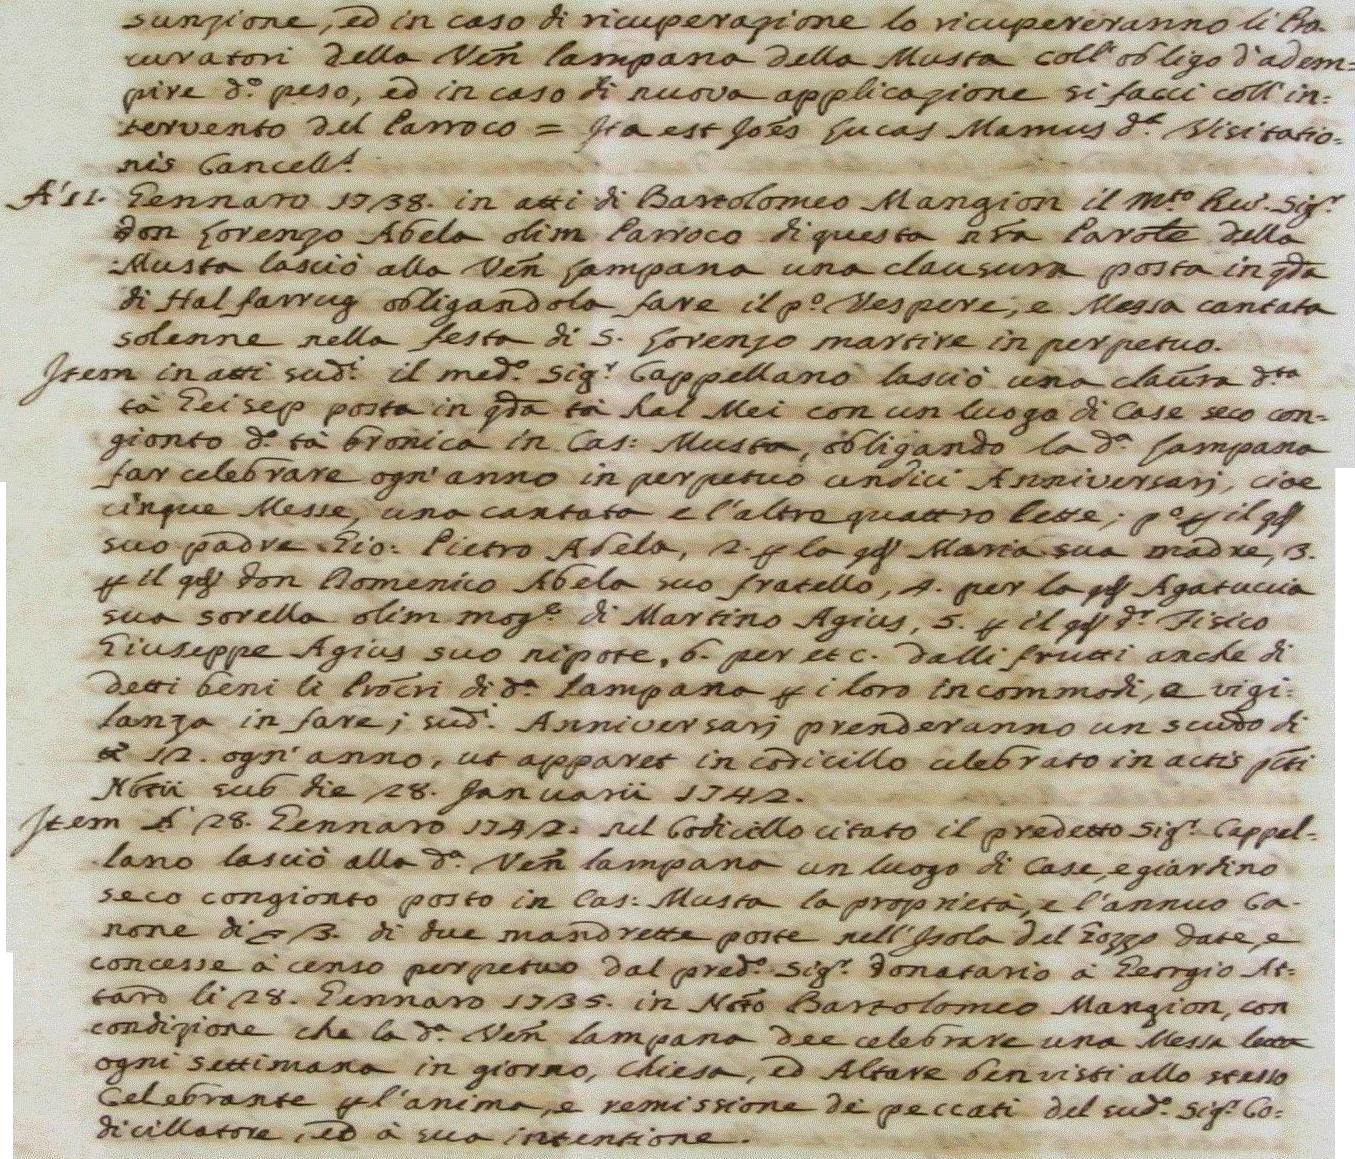 sunzione, ed in caso di ricuperazione lo ricupereranno li Pro-
curatori della Ven̄ Lampana della Musta coll'obligo d'adem=
pire d.º peso, ed in caso di nuova applicazione si facci coll'in=
tervento del Parroco = Ita est Joēs Lucas Mamus d.ᵉ Visitatio=
nis Cancell.ˢ
A' 11. Gennaro 1738. in atti di Bartolomeo Mangion il M.ᵗᵒ Rev. Sig.ʳ
don Lorenzo Abela olim Parroco di questa nr̄a Parole della
Musta lasciò alla Ven̄ Lampana una clausura posta in q̄da
di Hal farrug obligandola fare il p.º Vespere, e Messa cantata
solenne nella festa di S. Lorenzo martire in perpetuo.
Item in atti sud.ⁱ il med.º Sig.ʳ Cappellano lasciò una claūra d.ᵗᵃ
tà Geisep posta in q̄da tà hal Mei con un luogo di Case seco con-
gionto d.º tà bronica in Cas: Musta, obligando la d.ᵃ Lampana
far celebrare ogn'anno in perpetuo undici Anniversarj, cioe
cinque Messe, una cantata e l'altre quattro lette; p.º ꝑ il qq̄
suo padre Gio: Pietro Abela, 2. ꝑ la qq̄ Maria sua madre, 3.
ꝑ il qq̄ don Domenico Abela suo fratello, 4. per la qq̄ Agatuccia
sua sorella olim mog.ᵉ di Martino Agius, 5. ꝑ il qq̄ d.ʳ Fisico
Giuseppe Agius suo nipote, 6. per etc. dalli frutti anche di
detti beni li Procr̄i di d.ᵃ Lampana ꝑ i loro incommodi, e vigi=
lanza in fare i sud.ⁱ Anniversarj prenderanno un scudo di
tt̄ 12. ogn'anno, ut apparet in codicillo celebrato in actis pn̄ti
Not̄ii sub die 28. Januarii 1742.
Item A' 28. Gennaro 1742. nel Codicillo citato il predetto Sig.ʳ Cappel=
lano lasciò alla d.ᵃ Ven̄ Lampana un luogo di Case, e giardino
seco congionto posto in Cas: Musta la proprietà, e l'annuo Ca-
none di 3. di due mandrette poste nell'Isola del Gozzo date, e
concesse à censo perpetuo dal pred.º Sig.ʳ donatario à Georgio At=
tard li 28. Gennaro 1735. in Not̄o Bartolomeo Mangion, con
condizione che la d.ᵃ Ven̄ Lampana dee celebrare una Messa letta
ogni settimana in giorno, Chiesa, ed Altare benvisti allo stesso
Celebrante ꝑ l'anima, e remissione dei peccati del sud.º Sig.ʳ Co=
dicillatore, ed à sua intentione.